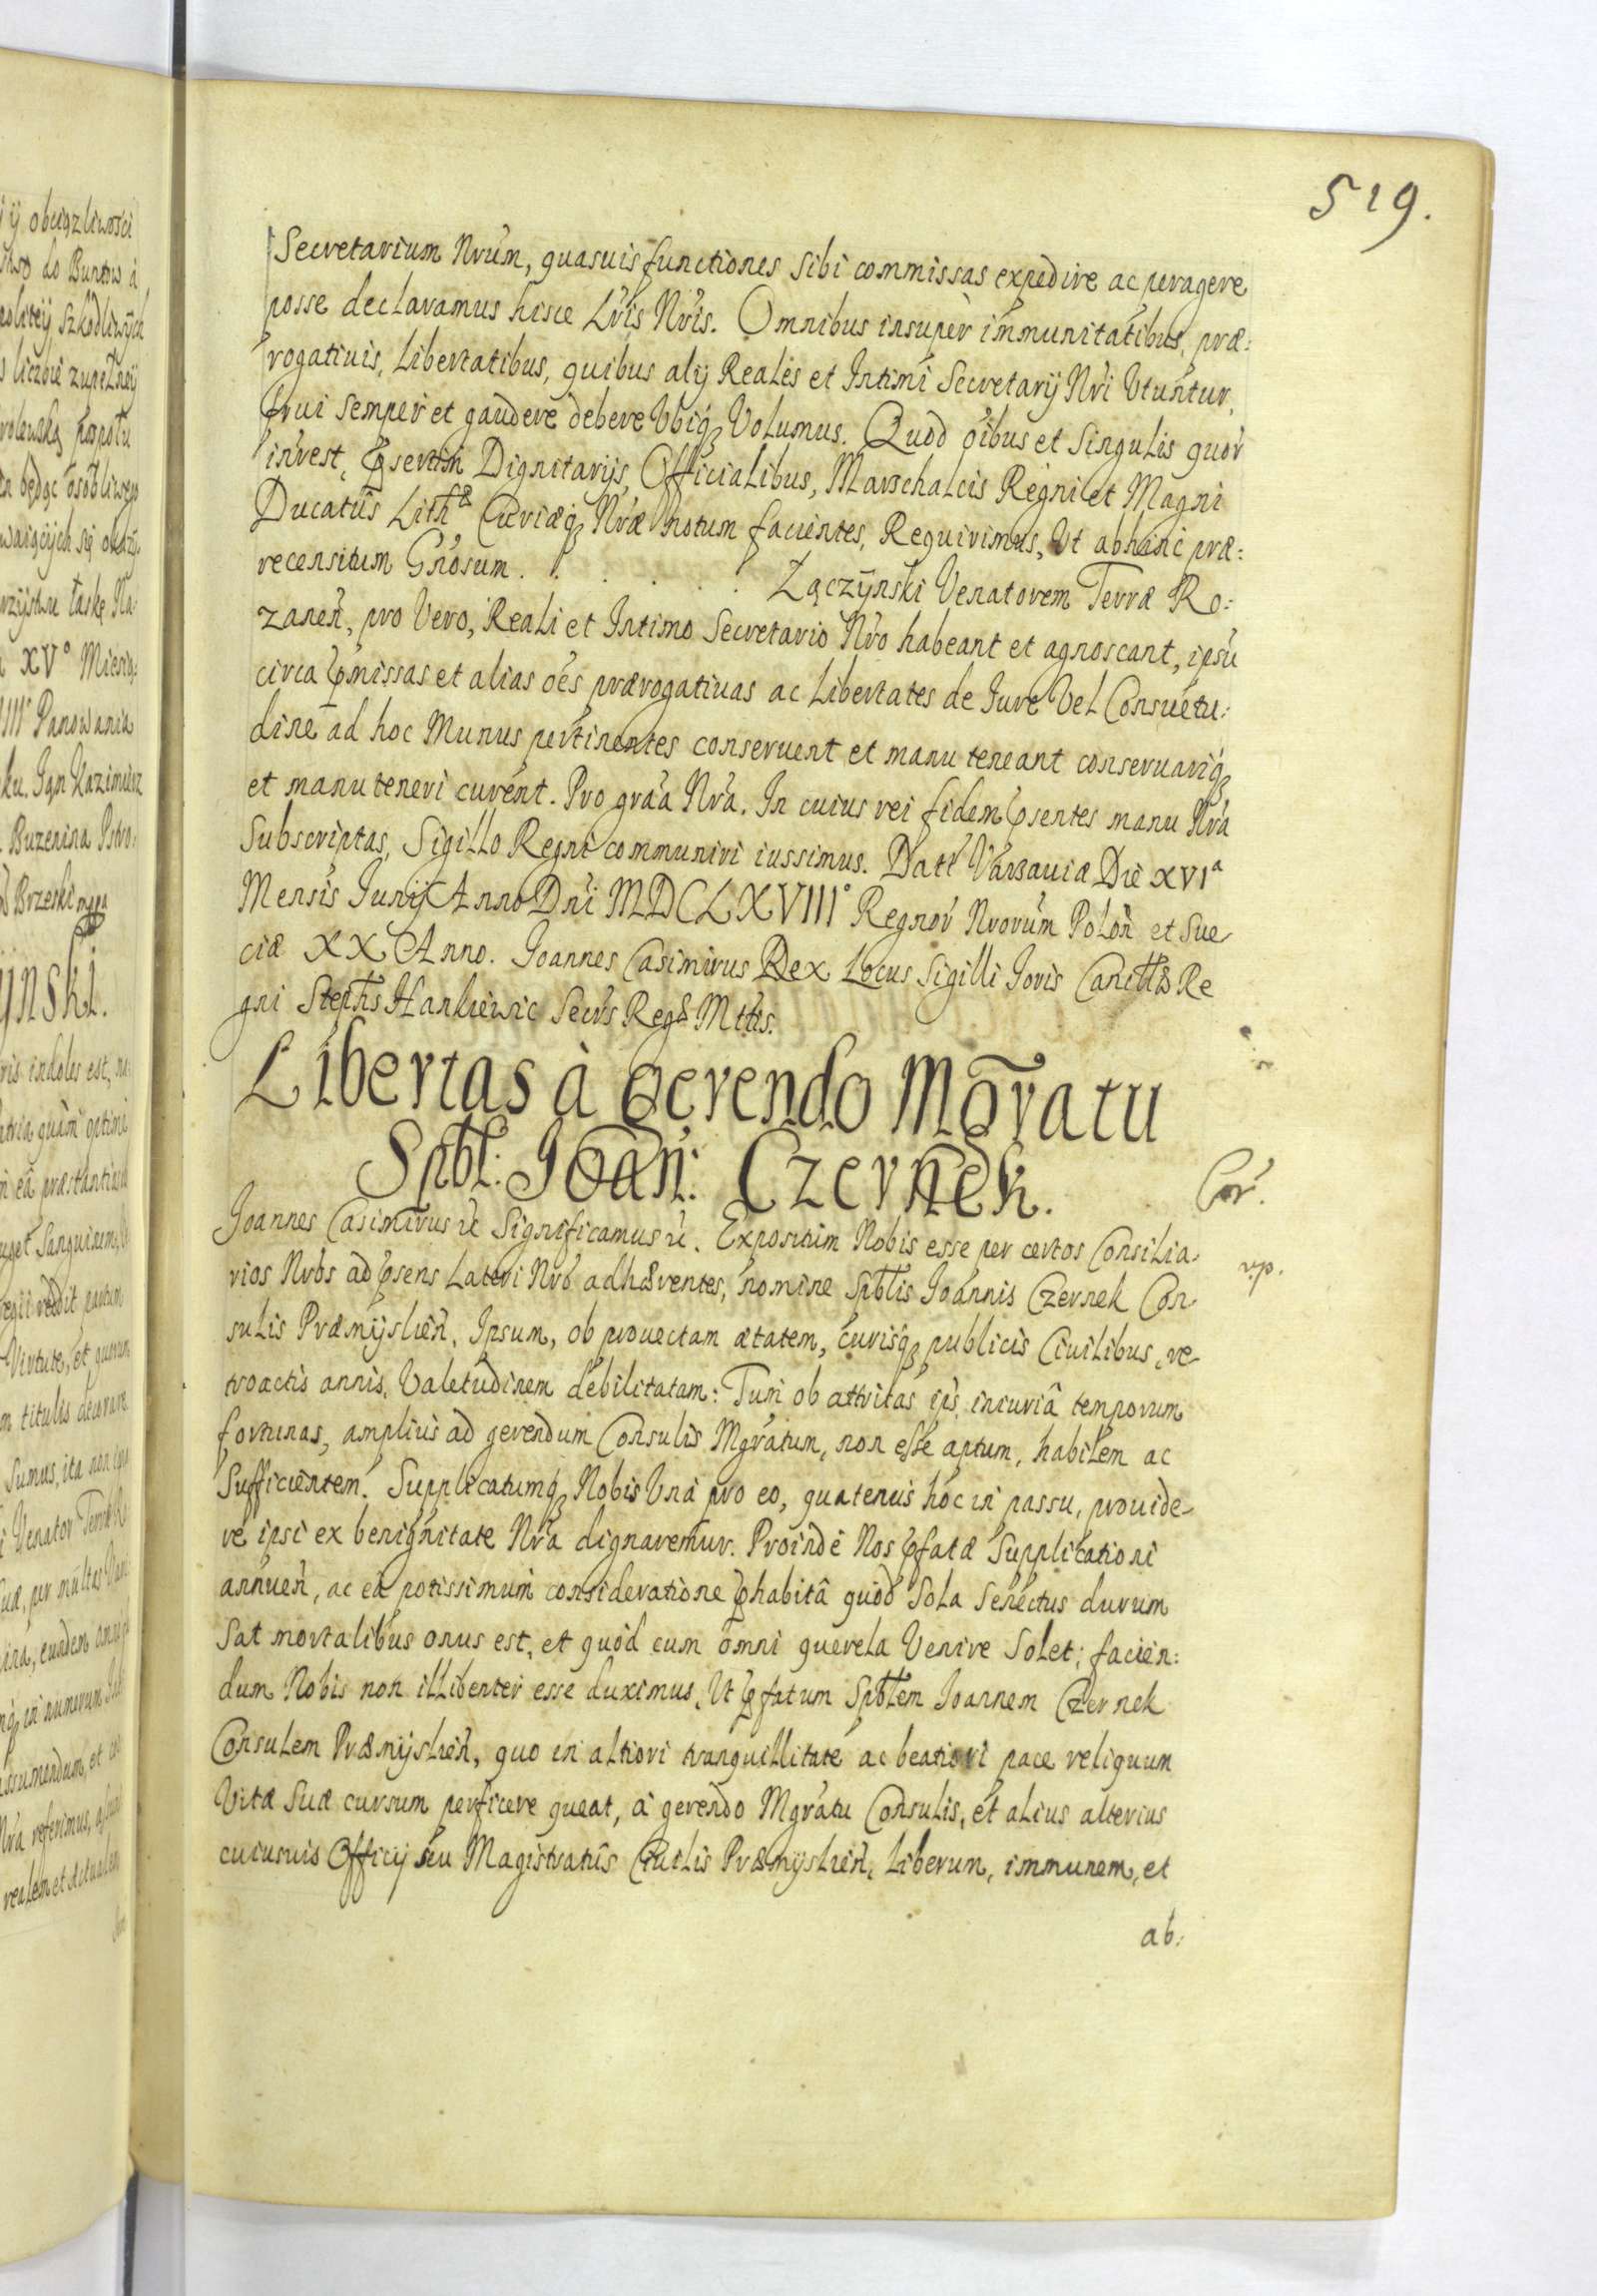 519.
Secretarium Nrūm, quasuis functiones sibi commissas expedire ac peragere
posse declaramus hisce Lrīs Nrīs. Omnibus insupèr immunitatibus, præ:
rogatiuis, Libertatibus, quibus alij Reales et Intimi Secretarij Nrī Utuntur,
frui semper et gaudere debere Ubiq₃ Volumus. Quod oībus et singulis quor̄
inrēst, p̄sertim Dignitarijs, Officialibus, Marschalcis Regni et Magni
Ducatûs Lith Curiæq₃ Nrǣ notum facientes, Requirimus, Ut abhinc præ:
recensitum Gnōsum . . . . . . . Zączÿnski Venatorem Terræ Ro:
zanen̄, pro Vero, Reali et Intimo Secretario Nrō habeant et agnoscant, ipsū
circa p̄missas et alias oēs prærogatiuas ac Libertates de Iure Vel Consuetu:
dine ad hoc Munus pertinentes conseruent et manu teneant conseruariq₃
et manu teneri curent. Pro graā Nrā. In cuius rei fidem p̄sentes manu Nrā
Subscriptas, Sigillo Regni communiri iussimus. Datt Varsauiæ Die XVIᵃ
Mensis Junij Anno Dnī MDCLXVIII° Regnor̄ Nrorūm Polon̄ et Sue
ciæ XX Anno. Joannes Casimirus Rex Locus Sigilli
gni Stephs Hankiewic Secrs̄ Reg Mttis.
Libertas à gerendo Mgrātu
Spbl: Joan: Czernek.
Cor̄.
Joannes Casimirus &c Significamus &c. Expositum Nobis esse per certos Consilia
rios Nrōs ad p̄sens Lateri Nrō adhærentes, nomine Spbtlis Joannis Czernek Con
sulis Præmÿslien̄, Ipsum, ob prouectam ætatem, curisq₃ publicis Ciuilibus, re
troactis annis, Valetudinem debilitatam: Tum ob attritas ipś iniuriâ temporum
fortunas, amplius ad gerendum Consulis Mgrātum, non esse aptum, habilem ac
Sufficientem. Supplicatumq₃ Nobis Unà pro eo, quatenus hoc in passu, prouide
re ipsi ex benignitate Nrā dignaremur. Proinde Nos p̄fatæ Supplicationi
annuen̄, ac eâ potissimum consideratione p̄habitâ quòd Sola Senectus durum
Sat mortalibus onus est, et quòd cum omni querela Venire Solet; facien:
dum Nobis non illibenter esse duximus, Ut p̄fatum Spbtlem Joannem Czernek
Consulem Præmÿslien̄, quo in altiori tranquillitate ac beatiori pace reliquum
Vitæ Suæ cursum perficere queat, à gerendo Mgrātu Consulis, et alius alterius
cuiusuis Officij seu Magistratûs Ciuilis Præmÿslien̄, Liberum, immunem, et
ab: